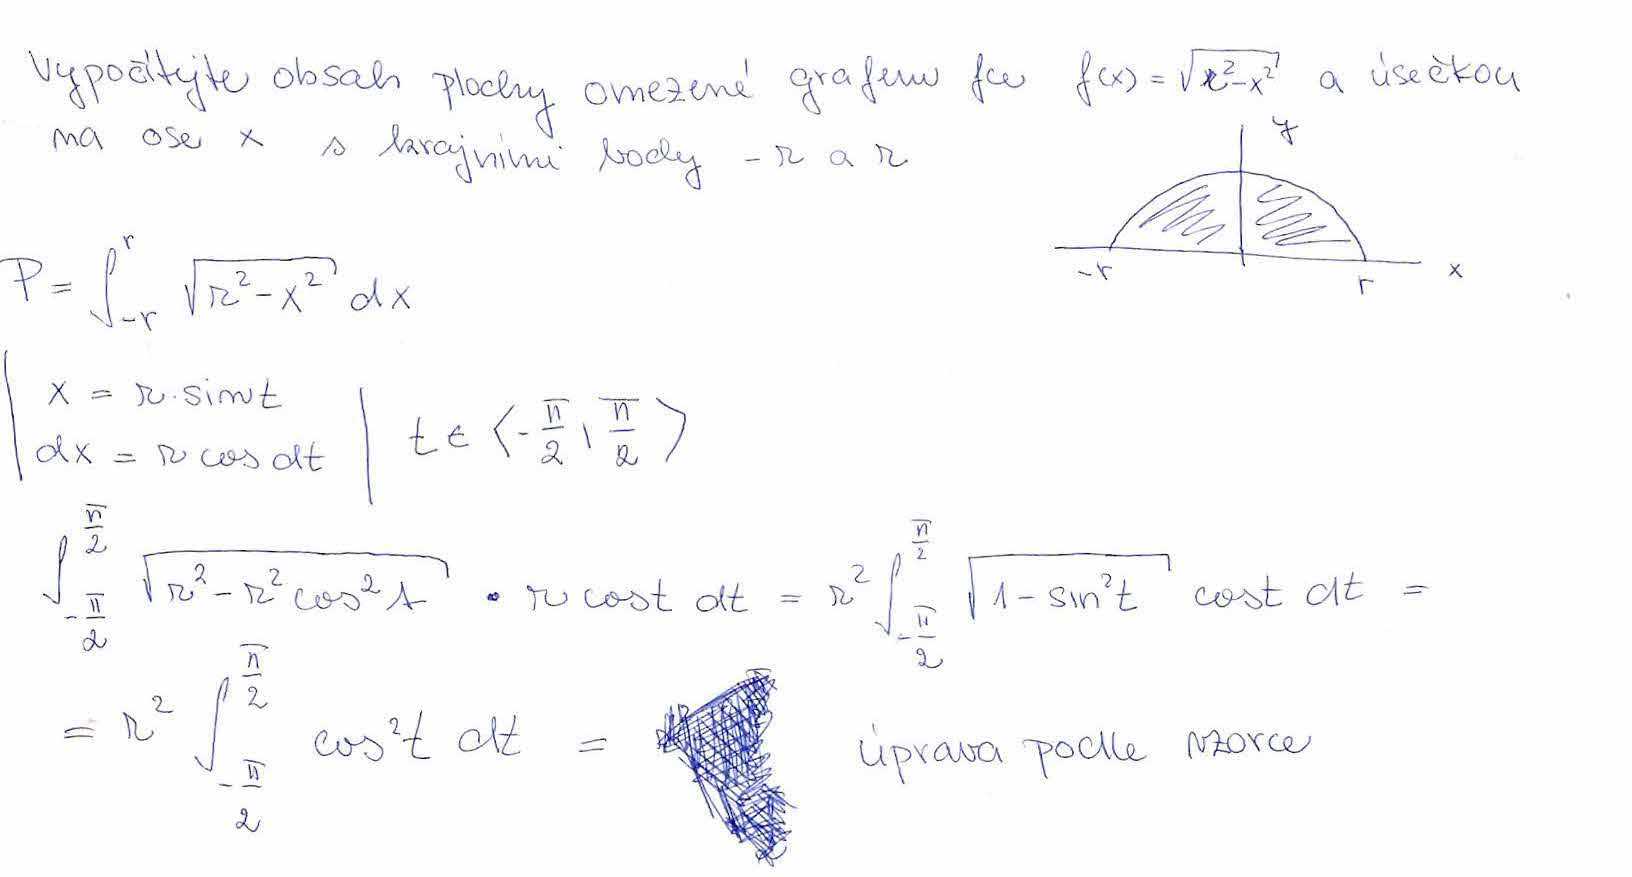 Vypočítejte obsah plochy omezené grafem fce f(x) = √(r²-x²) a úsečkou
na ose x s krajními body -r a r
y
-r r x
P = ∫_{-r}^{r} √(r²-x²) dx
x = r·sint
dx = r cos dt
t ∈ ⟨-π/2, π/2⟩
∫_{-π/2}^{π/2} √(r²-r²cos²t) · r cost dt = r² ∫_{-π/2}^{π/2} √(1-sin²t) cost dt =
= r² ∫_{-π/2}^{π/2} cos²t dt = úprava podle vzorce